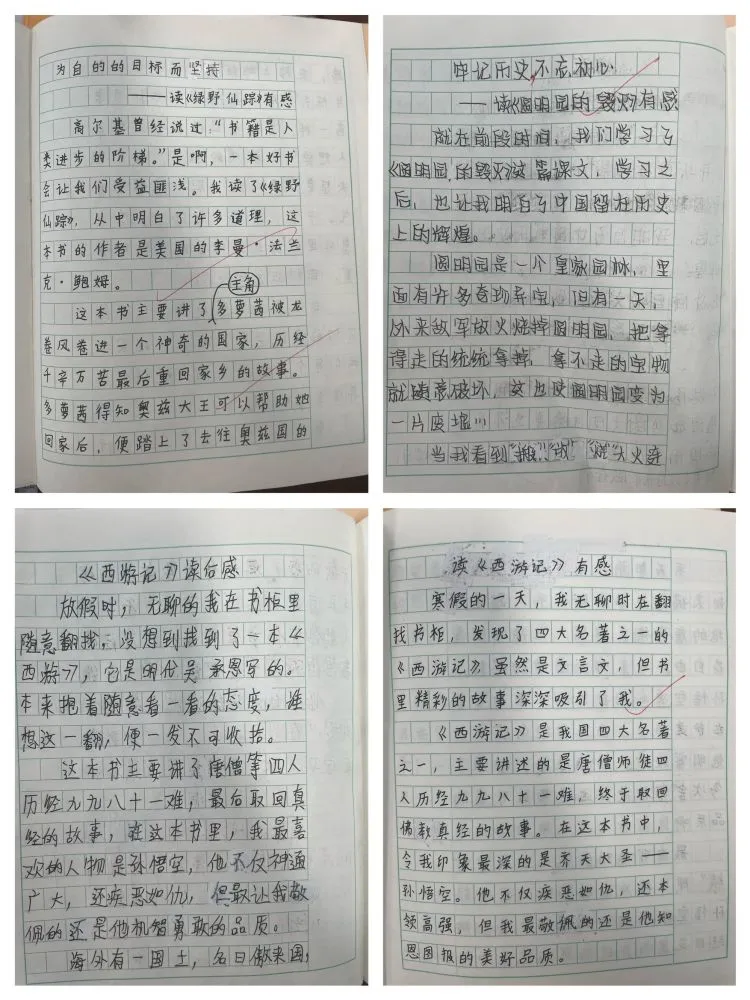 为自的的目标而坚持
——读《绿野仙踪》有感
高尔基曾经说过:“书籍是人
类进步的阶梯。”是啊,一本好书
会让我们受益匪浅。我读了《绿野
仙踪》,从中明白了许多道理,这
本书的作者是美国的李曼·法兰
克·鲍姆。
主角
这本书主要讲了多萝茜被龙
卷风卷进一个神奇的国家,历经
千辛万苦最后重回家乡的故事。
多萝茜得知奥兹大王可以帮助她
回家后,便踏上了去往奥兹国的
牢记历史,不忘初心
——读《圆明园的毁灭》有感
就在前段时间,我们学习了
《圆明园的毁灭》这篇课文,学习之
后,也让我明白了中国留在历史
上的辉煌。
圆明园是一个皇家园林,里
面有许多奇珍异宝,但有一天,
外来敌军放火烧掉圆明园,把拿
得走的统统拿掉,拿不走的宝物
就随意破坏,这也使圆明园变为
一片废墟!!!
当我看到“大火连
《西游记》读后感
放假时,无聊的我在书柜里
随意翻找,没想到找到了一本《
西游》,它是明代吴承恩写的。
本来抱着随意看一看的态度,谁
想这一翻,便一发不可收拾。
这本书主要讲了唐僧等四人
历经九九八十一难,最后取回真
经的故事,在这本书里,我最喜
欢的人物是孙悟空,他不仅神通
广大,还疾恶如仇,但最让我敬
佩的还是他机智勇敢的品质。
海外有一国土,名曰傲来国,
读《西游记》有感
寒假的一天,我无聊时在翻
找书柜,发现了四大名著之一的
《西游记》虽然是文言文,但书
里精彩的故事深深吸引了我。
《西游记》是我国四大名著
之一,主要讲述的是唐僧师徒四
人历经九九八十一难,终于取回
佛教真经的故事。在这本书中,
令我印象最深的是齐天大圣——
孙悟空。他不仅疾恶如仇,还本
领高强,但我最敬佩的还是他知
恩图报的美好品质。